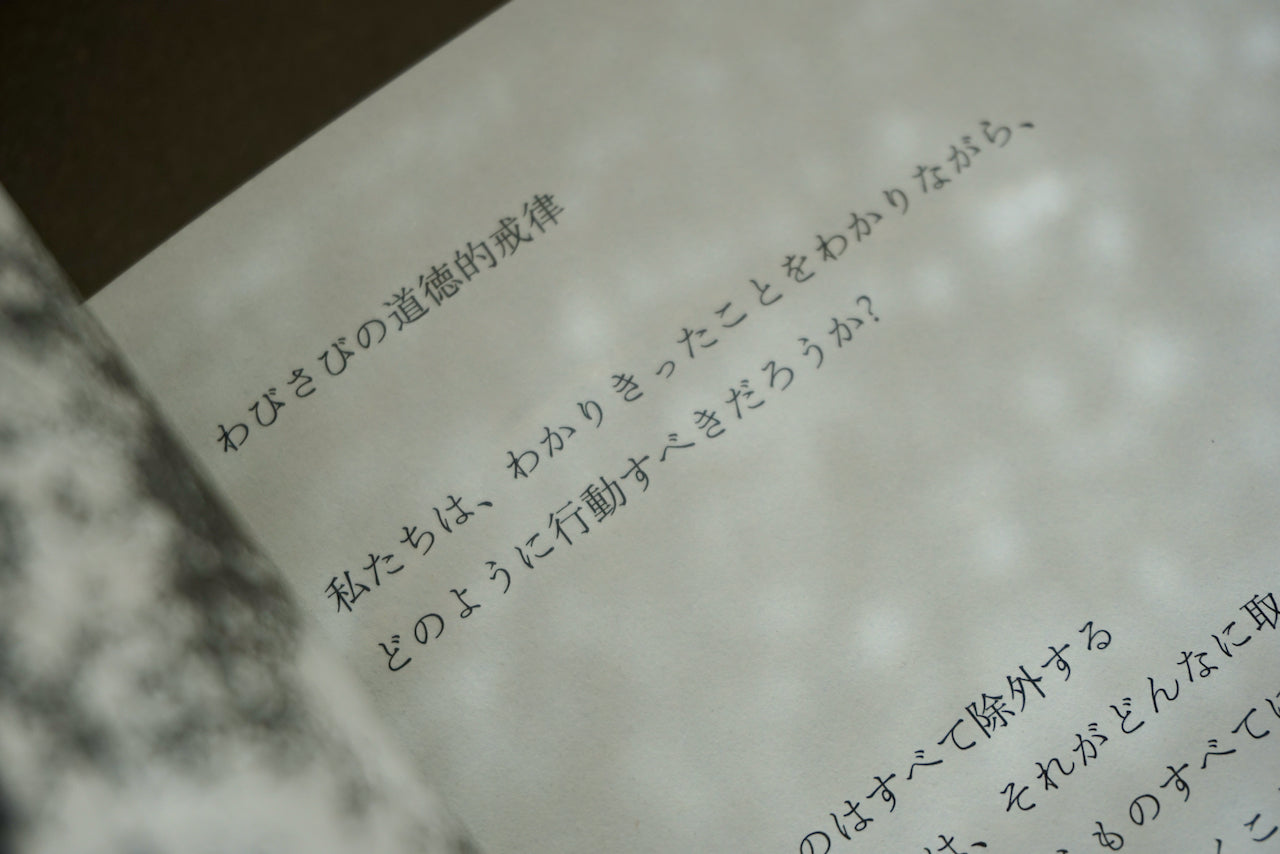 わびさびの道徳的戒律
私たちは、わかりきったことをわかりながら、
どのように行動すべきだろうか?
のはすべて除外する
は、それがどんなに取
ものすべてに